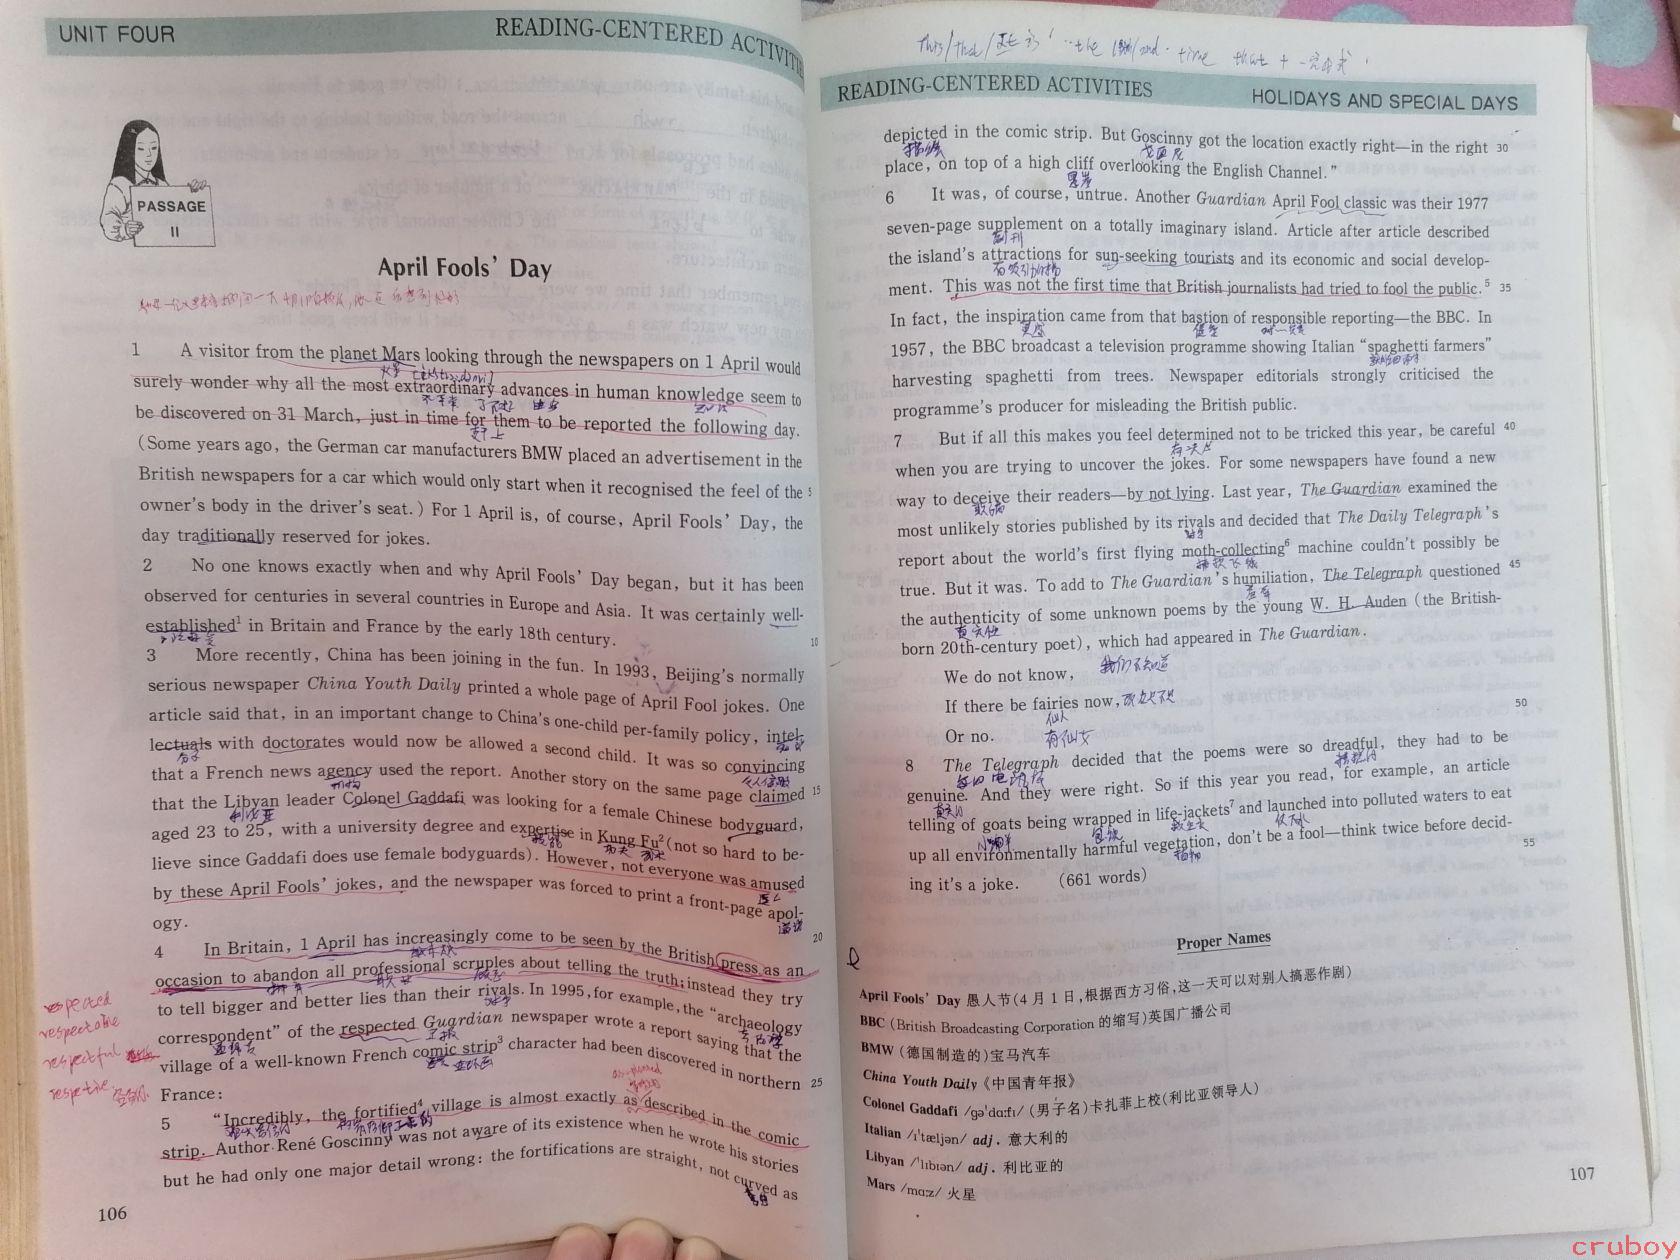 UNIT FOUR
READING-CENTERED ACTIVITIE
PASSAGE
II
April Fools' Day
1 A visitor from the planet Mars looking through the newspapers on 1 April would
surely wonder why all the most extraordinary advances in human knowledge seem to
be discovered on 31 March, just in time for them to be reported the following day.
(Some years ago, the German car manufacturers BMW placed an advertisement in the
British newspapers for a car which would only start when it recognised the feel of the 5
owner's body in the driver's seat.) For 1 April is, of course, April Fools' Day, the
day traditionally reserved for jokes.
2 No one knows exactly when and why April Fools' Day began, but it has been
observed for centuries in several countries in Europe and Asia. It was certainly well-
established¹ in Britain and France by the early 18th century. 10
3 More recently, China has been joining in the fun. In 1993, Beijing's normally
serious newspaper China Youth Daily printed a whole page of April Fool jokes. One
article said that, in an important change to China's one-child per-family policy, intel-
lectuals with doctorates would now be allowed a second child. It was so convincing
that a French news agency used the report. Another story on the same page claimed 15
that the Libyan leader Colonel Gaddafi was looking for a female Chinese bodyguard,
aged 23 to 25, with a university degree and expertise in Kung Fu² (not so hard to be-
lieve since Gaddafi does use female bodyguards). However, not everyone was amused
by these April Fools' jokes, and the newspaper was forced to print a front-page apol-
ogy. 20
4 In Britain, 1 April has increasingly come to be seen by the British press as an
occasion to abandon all professional scruples about telling the truth; instead they try
to tell bigger and better lies than their rivals. In 1995, for example, the "archaeology
correspondent" of the respected Guardian newspaper wrote a report saying that the
village of a well-known French comic strip³ character had been discovered in northern
France: 25
5 "Incredibly, the fortified⁴ village is almost exactly as described in the comic
strip. Author René Goscinny was not aware of its existence when he wrote his stories
but he had only one major detail wrong: the fortifications are straight, not curved as
respected
respectable
respectful
106
READING-CENTERED ACTIVITIES
HOLIDAYS AND SPECIAL DAYS
depicted in the comic strip. But Goscinny got the location exactly right—in the right 30
place, on top of a high cliff overlooking the English Channel."
6 It was, of course, untrue. Another Guardian April Fool classic was their 1977
seven-page supplement on a totally imaginary island. Article after article described
the island's attractions for sun-seeking tourists and its economic and social develop-
ment. This was not the first time that British journalists had tried to fool the public.⁵ 35
In fact, the inspiration came from that bastion of responsible reporting—the BBC. In
1957, the BBC broadcast a television programme showing Italian "spaghetti farmers"
harvesting spaghetti from trees. Newspaper editorials strongly criticised the
programme's producer for misleading the British public.
7 But if all this makes you feel determined not to be tricked this year, be careful 40
when you are trying to uncover the jokes. For some newspapers have found a new
way to deceive their readers—by not lying. Last year, The Guardian examined the
most unlikely stories published by its rivals and decided that The Daily Telegraph's
report about the world's first flying moth-collecting⁶ machine couldn't possibly be
true. But it was. To add to The Guardian's humiliation, The Telegraph questioned 45
the authenticity of some unknown poems by the young W. H. Auden (the British-
born 20th-century poet), which had appeared in The Guardian.
We do not know, 我们不知道
If there be fairies now,
Or no. 有仙女 50
8 The Telegraph decided that the poems were so dreadful, they had to be
genuine. And they were right. So if this year you read, for example, an article
telling of goats being wrapped in life-jackets⁷ and launched into polluted waters to eat
up all environmentally harmful vegetation, don't be a fool—think twice before decid-
ing it's a joke. (661 words) 55
Proper Names
April Fools' Day 愚人节(4月1日,根据西方习俗,这一天可以对别人搞恶作剧)
BBC (British Broadcasting Corporation 的缩写)英国广播公司
BMW (德国制造的)宝马汽车
China Youth Daily《中国青年报》
Colonel Gaddafi /gə'dɑ:fɪ/ (男子名)卡扎菲上校(利比亚领导人)
Italian /ɪ'tæljən/ adj. 意大利的
Libyan /'lɪbɪən/ adj. 利比亚的
Mars /mɑ:z/ 火星
107
cruboy